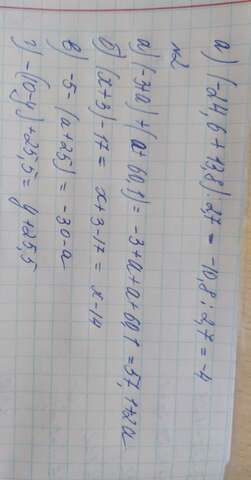 а) (-24,6+13,8):2,7= -10,8:2,7=-4
№2
а) (-3+a)+(a+60,1)= -3+a+a+60,1=57,1+2a
б) (x+3)-17= x+3-17= x-14
в) -5-(a+25)= -30-a
г) -(10-y)+25,5= y+25,5